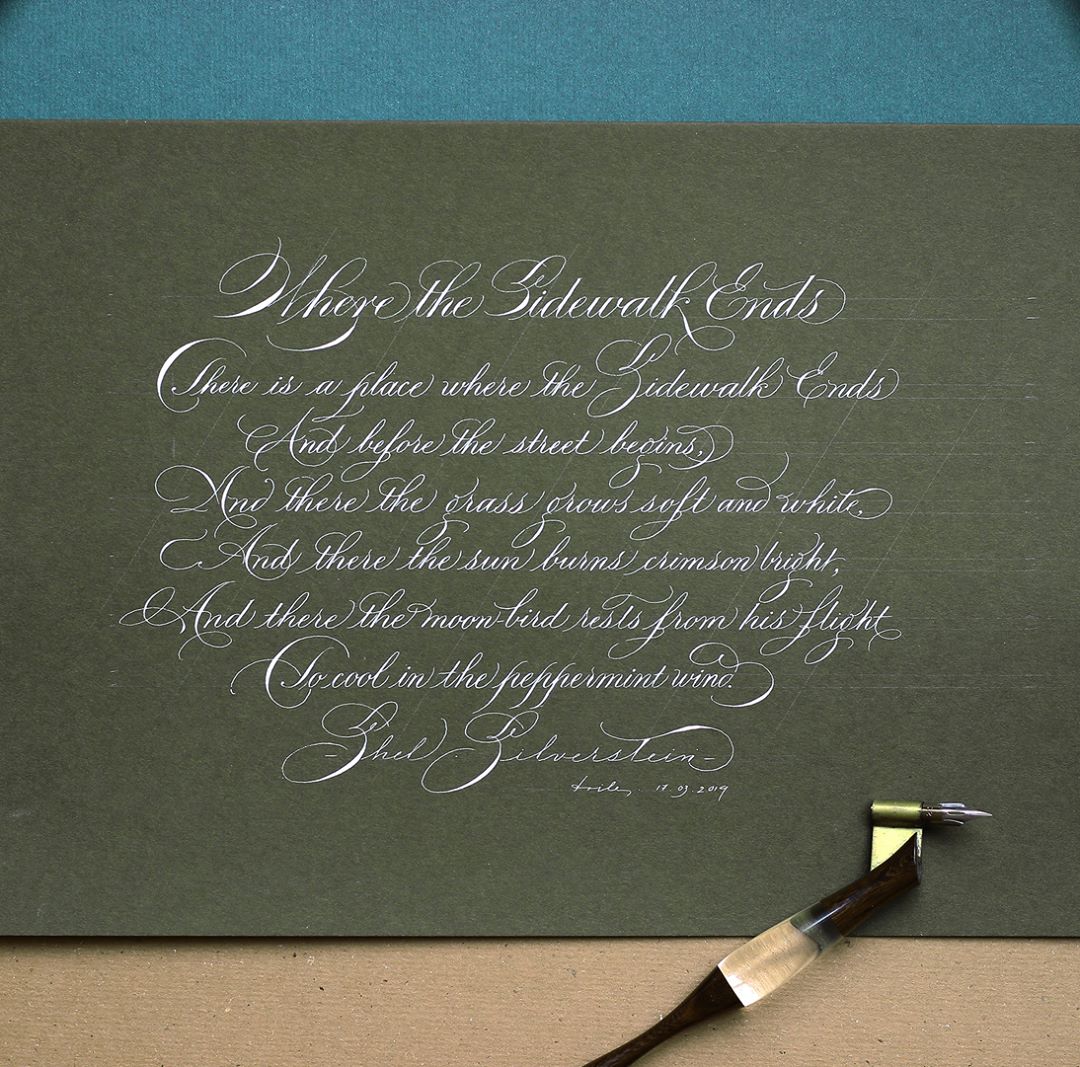 Where the Sidewalk Ends
There is a place where the Sidewalk Ends
And before the street begins,
And there the grass grows soft and white,
And there the sun burns crimson bright,
And there the moon-bird rests from his flight
To cool in the peppermint wind.
- Shel Silverstein -
17.03.2019